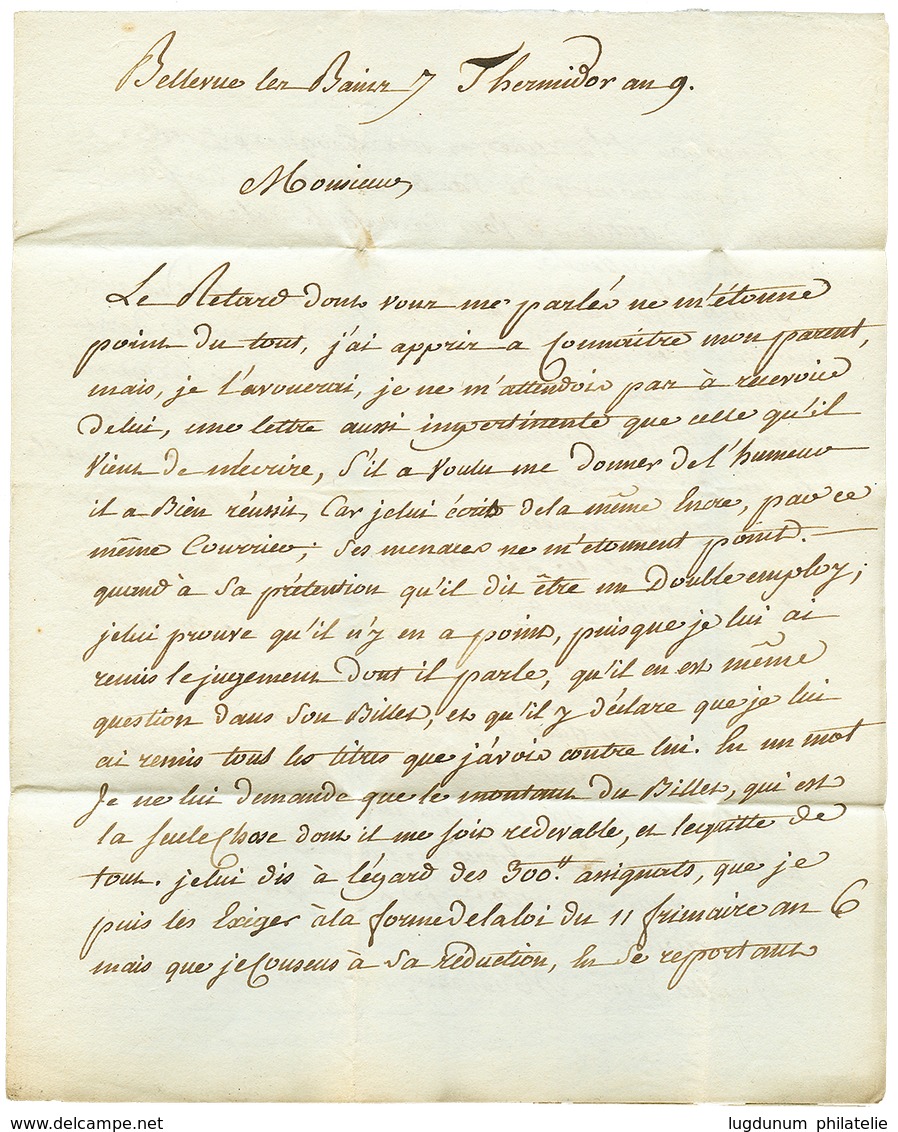 Bellevue les Bains 7 Thermidor an 9.
Monsieur,
Le Retard dont vous me parlés ne m'étonne
point du tout, j'ai appris a Connoître mon parent,
mais, je l'avouerai, je ne m'attendois pas à recevoir
delui, une lettre aussi impertinente que celle qu'il
Vient de m'écrire, S'il a Voulu me donner de l'humeur
il a Bien réussit, Car jelui écris dela même Encre, par ce
même Courrier; Ses menaces ne m'etonnent point.
quand à Sa prétention qu'il dit être un Double employ;
jelui prouve qu'il n'y en a point, puisque je lui ai
remis le jugement dont il parle, qu'il en est même
question dans Son Billet, et qu'il y déclare que je lui
ai remis tous les titres que j'avois contre lui. En un mot
Je ne lui demande que le montant du Billet, qui est
la seule Chose dont il me soit redevable, et le quitte de
tout. jelui dis à l'égard des 300# assignats, que je
puis les Exiger àla forme dela loi du 11 frimaire an 6
mais que je Consens à Sa réduction, En Se reportant
www.delcampe.net
lugdunum philatelie